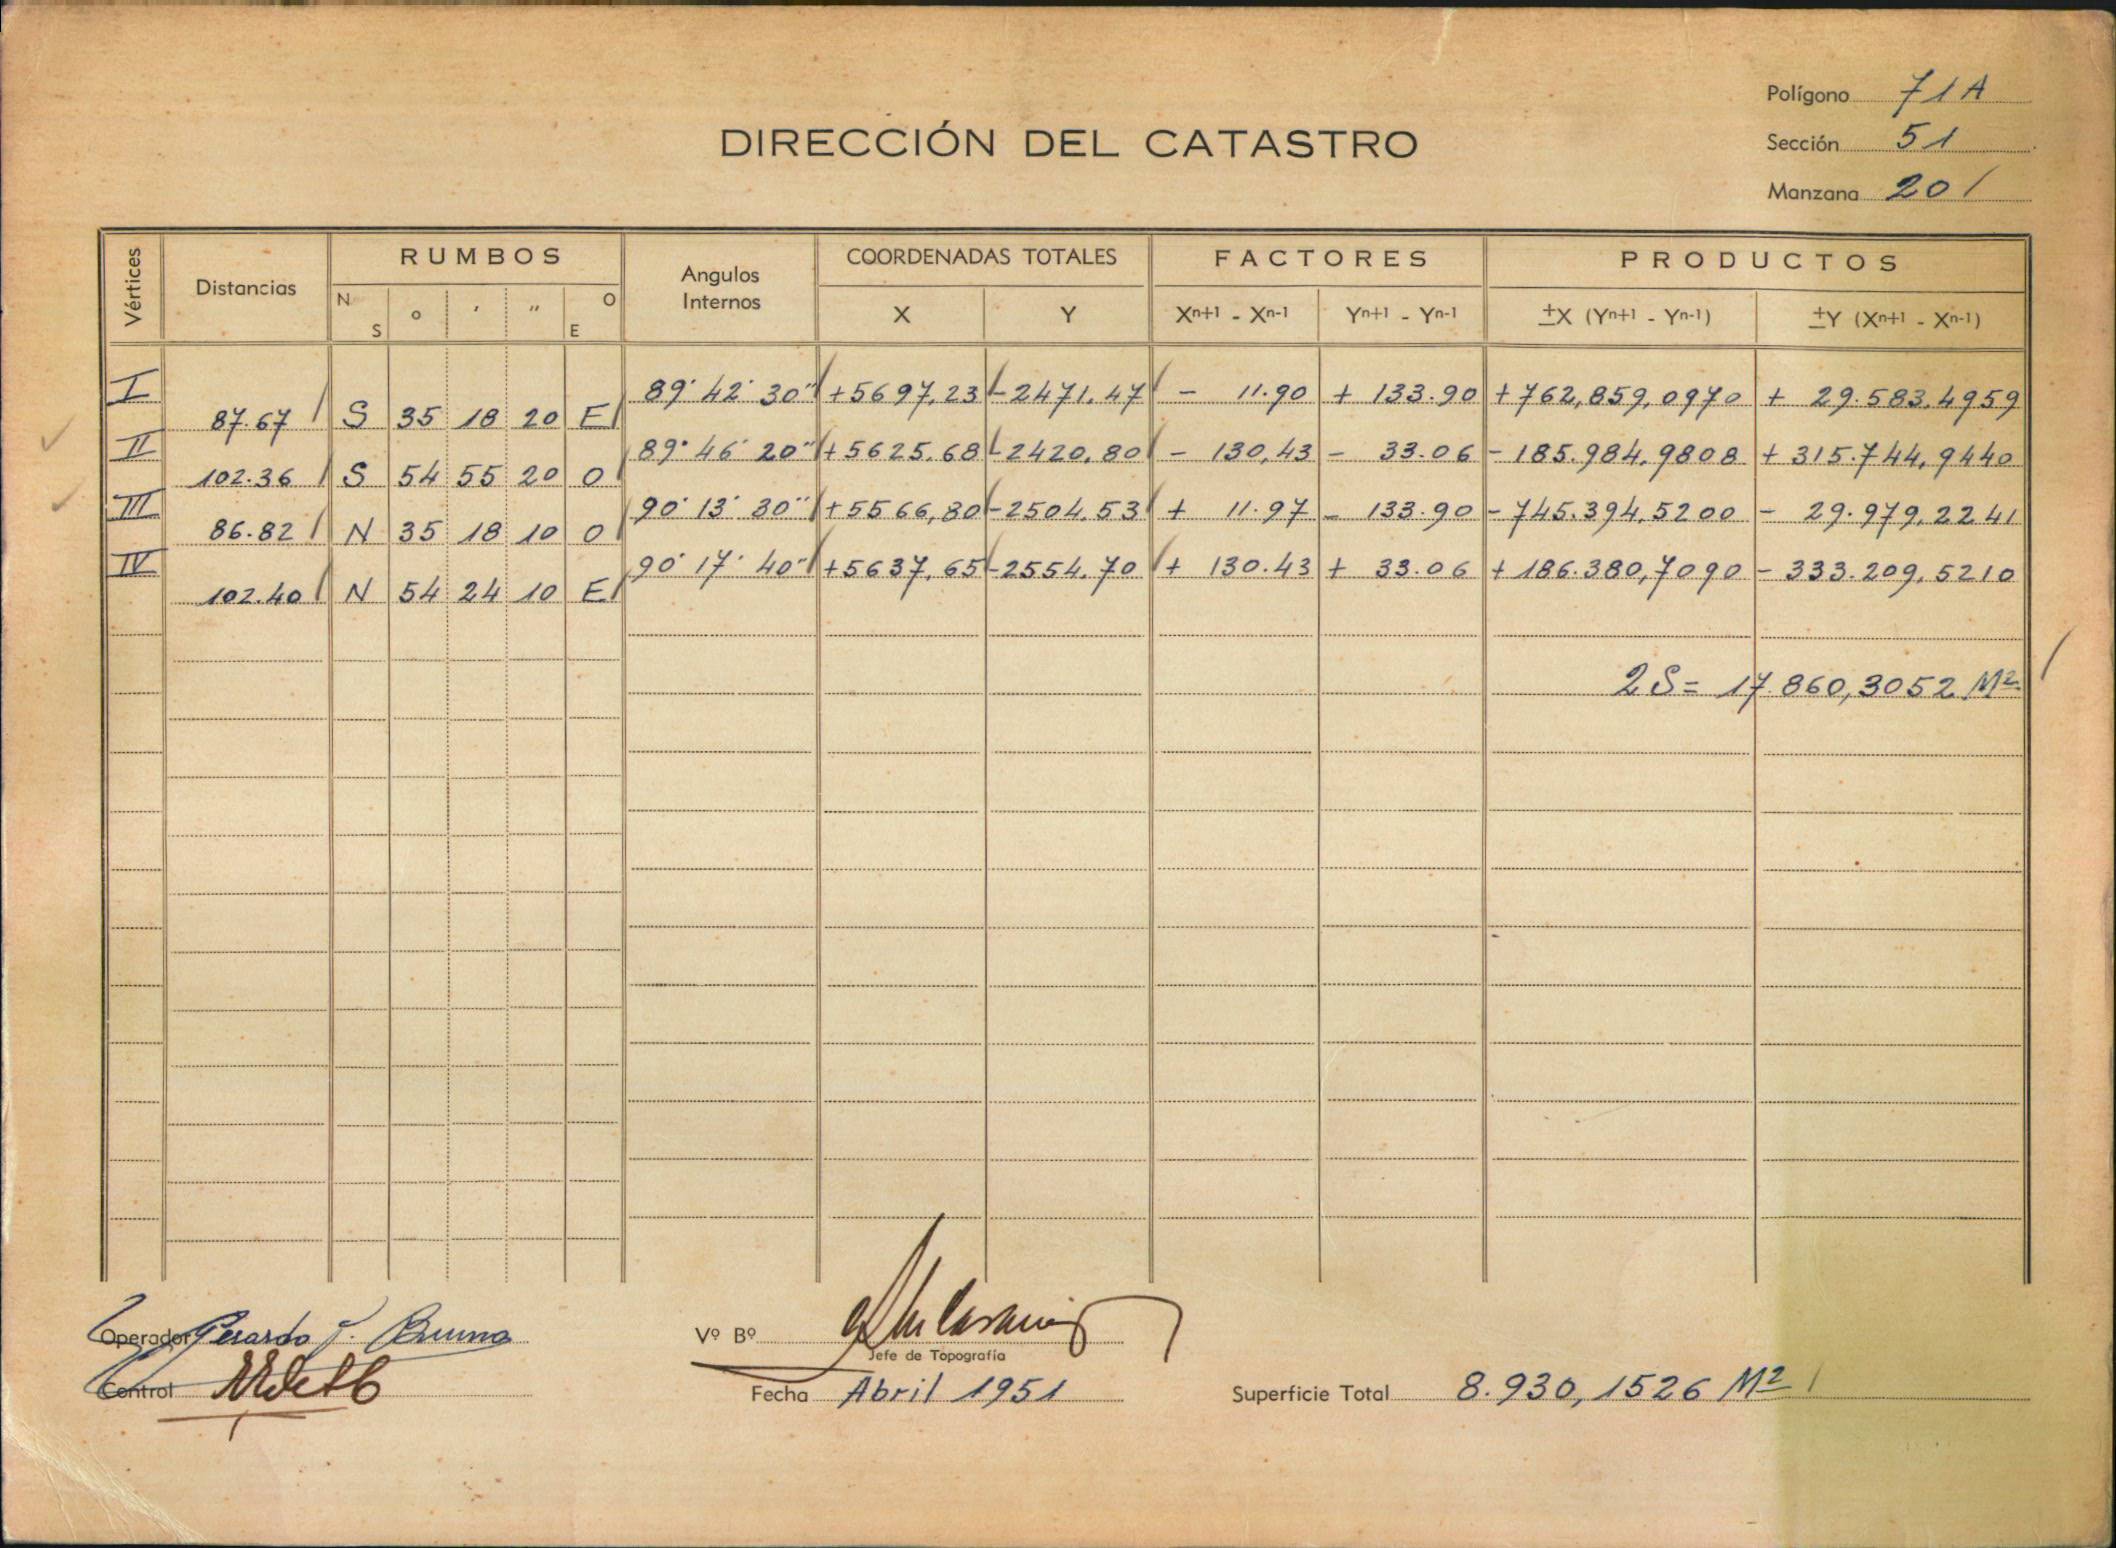 Polígono 71A
DIRECCIÓN DEL CATASTRO
Sección 51
Manzana 20 /
Vértices Distancias RUMBOS Angulos Internos COORDENADAS TOTALES FACTORES PRODUCTOS
N S ° ' " O E X Y Xn+1 - Xn-1 Yn+1 - Yn-1 ±X (Yn+1 - Yn-1) ±Y (Xn+1 - Xn-1)
I 89° 42' 30" +5697,23 -2471.47 - 11.90 + 133.90 +762,859,0970 + 29.583,4959
87.67 S 35 18 20 E
II 89° 46' 20" +5625.68 -2420,80 - 130,43 - 33.06 -185.984,9808 +315.744,9440
102.36 S 54 55 20 O
III 90° 13' 30" +5566,80 -2504.53 + 11.97 - 133.90 -745.394,5200 - 29.979,2241
86.82 N 35 18 10 O
IV 90° 17' 40" +5637,65 -2554.70 + 130.43 + 33.06 +186.380,7090 -333.209,5210
102.40 N 54 24 10 E
2S = 17.860,3052 M2
Operador Gerardo F. Bruno
Vº Bº
Jefe de Topografía
Control
Fecha Abril 1951
Superficie Total 8.930,1526 M2